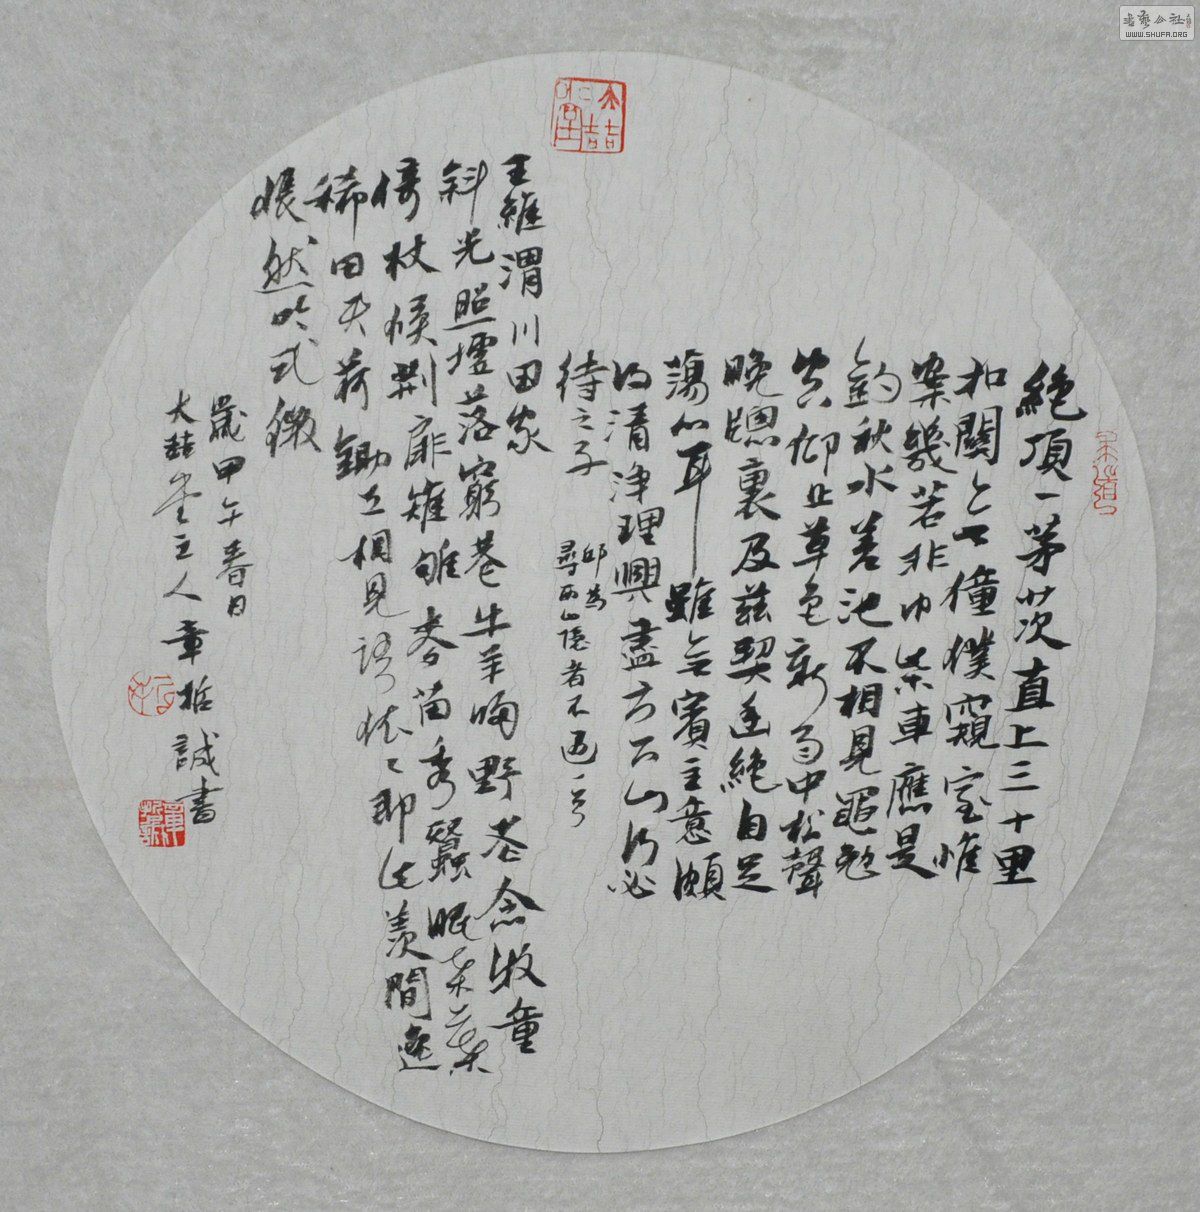 絕頂一茅茨直上三十里
扣關無僮僕窺室惟
案幾若非巾柴車應是
釣秋水差池不相見黽勉
空仰止草色新雨中松聲
晚牕裏及茲契幽絕自足
蕩心耳雖無賓主意頗
得清淨理興盡方下山何必
待之子
邱為
尋西山隱者不遇
王維渭川田家
斜光照墟落窮巷牛羊歸野老念牧童
倚杖候荊扉雉雊麥苗秀蠶眠桑葉
稀田夫荷鋤立相見語依〻即此羨閒逸
悵然吟式微
歲甲午春日
大喆堂主人章哲誠書
WWW.SHUFA.ORG